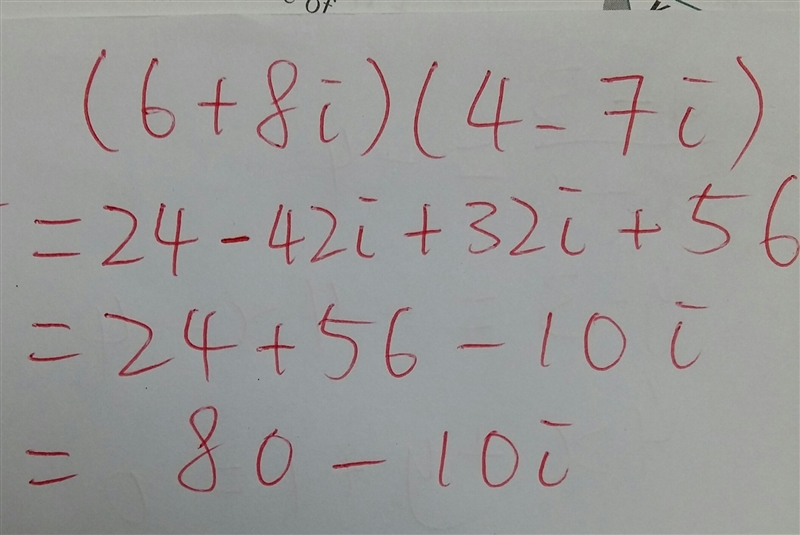 of
(6+8i)(4-7i)
=24-42i+32i+56
=24+56-10i
= 80-10i